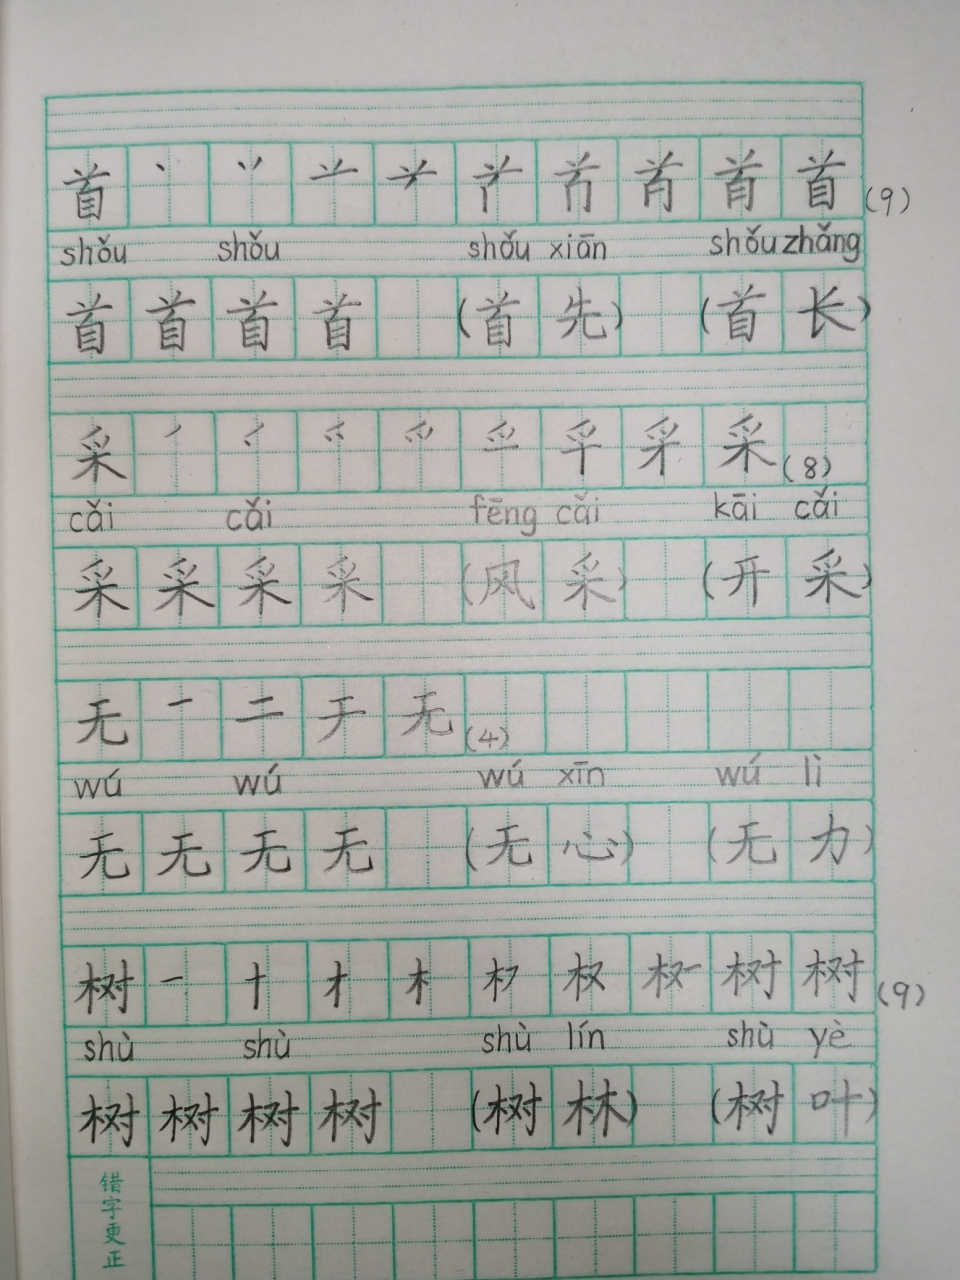 首 丶 丷 䒑 首 (9)
shǒu shǒu shǒu xiān shǒu zhǎng
首 首 首 首 (首 先) (首 长)
采 丿 采 (8)
cǎi cǎi fēng cǎi kāi cǎi
采 采 采 采 (风 采) (开 采)
无 一 二 无 (4)
wú wú wú xīn wú lì
无 无 无 无 (无 心) (无 力)
树 一 十 木 权 树 (9)
shù shù shù lín shù yè
树 树 树 树 (树 林) (树 叶)
错字更正